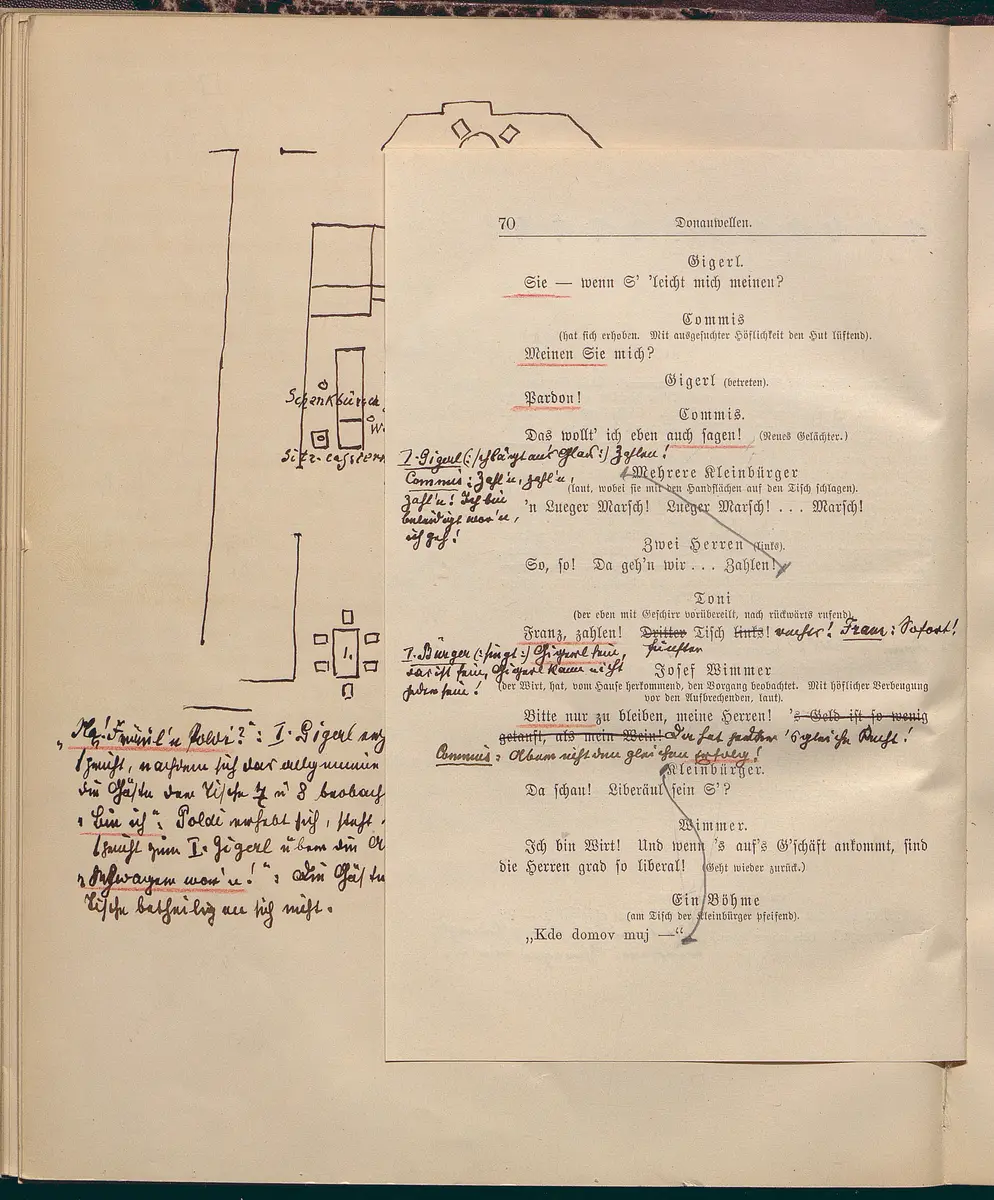 70 Donauwellen.
Gigerl.
Sie — wenn S' 'leicht mich meinen?
Commis
(hat sich erhoben. Mit ausgesuchter Höflichkeit den Hut lüftend).
Meinen Sie mich?
Gigerl (betreten).
Pardon!
Commis.
Das wollt' ich eben auch sagen! (Neues Gelächter.)
I. Gigerl (: schlägt aus Glas :) Zahlen!
Commis: Zahl'n, zahl'n,
zahl'n! Ich bin
beleidigt wor'n,
ich geh!
Mehrere Kleinbürger
(laut, wobei sie mit den Handflächen auf den Tisch schlagen).
'n Lueger Marsch! Lueger Marsch! . . . Marsch!
Zwei Herren (links).
So, so! Da geh'n wir . . . Zahlen!
Toni
(der eben mit Geschirr vorübereilt, nach rückwärts rufend).
Franz, zahlen! Dritter Tisch links! rechts! Franz: Sofort!
fünfter
I. Bürger (: singt :) Gigerl sein,
das ist fein, Gigerl kann nicht
jeder sein!
Josef Wimmer
(der Wirt, hat, vom Hause herkommend, den Vorgang beobachtet. Mit höflicher Verbeugung
vor den Aufbrechenden, laut).
Bitte nur zu bleiben, meine Herren! 's Geld ist so wenig
getauft, als mein Wein! Da hat jeder 's gleiche Recht!
Commis: Aber nicht den gleichen Erfolg!
Kleinbürger.
Da schau! Liberäul sein S'?
Wimmer.
Ich bin Wirt! Und wenn 's auf's G'schäft ankommt, sind
die Herren grad so liberal! (Geht wieder zurück.)
Ein Böhme
(am Tisch der Kleinbürger pfeifend).
„Kde domov muj —“
Schankbursch
W
Sitz-cassierin
1.
„Na! Fräul'n Poldi?“: I. Gigerl
spricht, nachdem sich das allgemeine
die Gäste der Tische 7 u 8 beobach
„Bin ich“: Poldi erhebt sich, steht
spricht zum I. Gigerl über die
„Schwagen wor'n!“: Die Gäste
Tische betheiligen sich nicht.